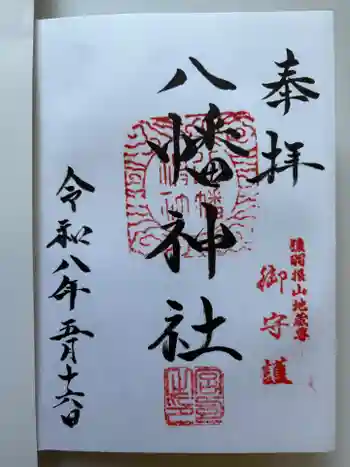 奉拝
八幡神社
令和八年五月十六日
御守護